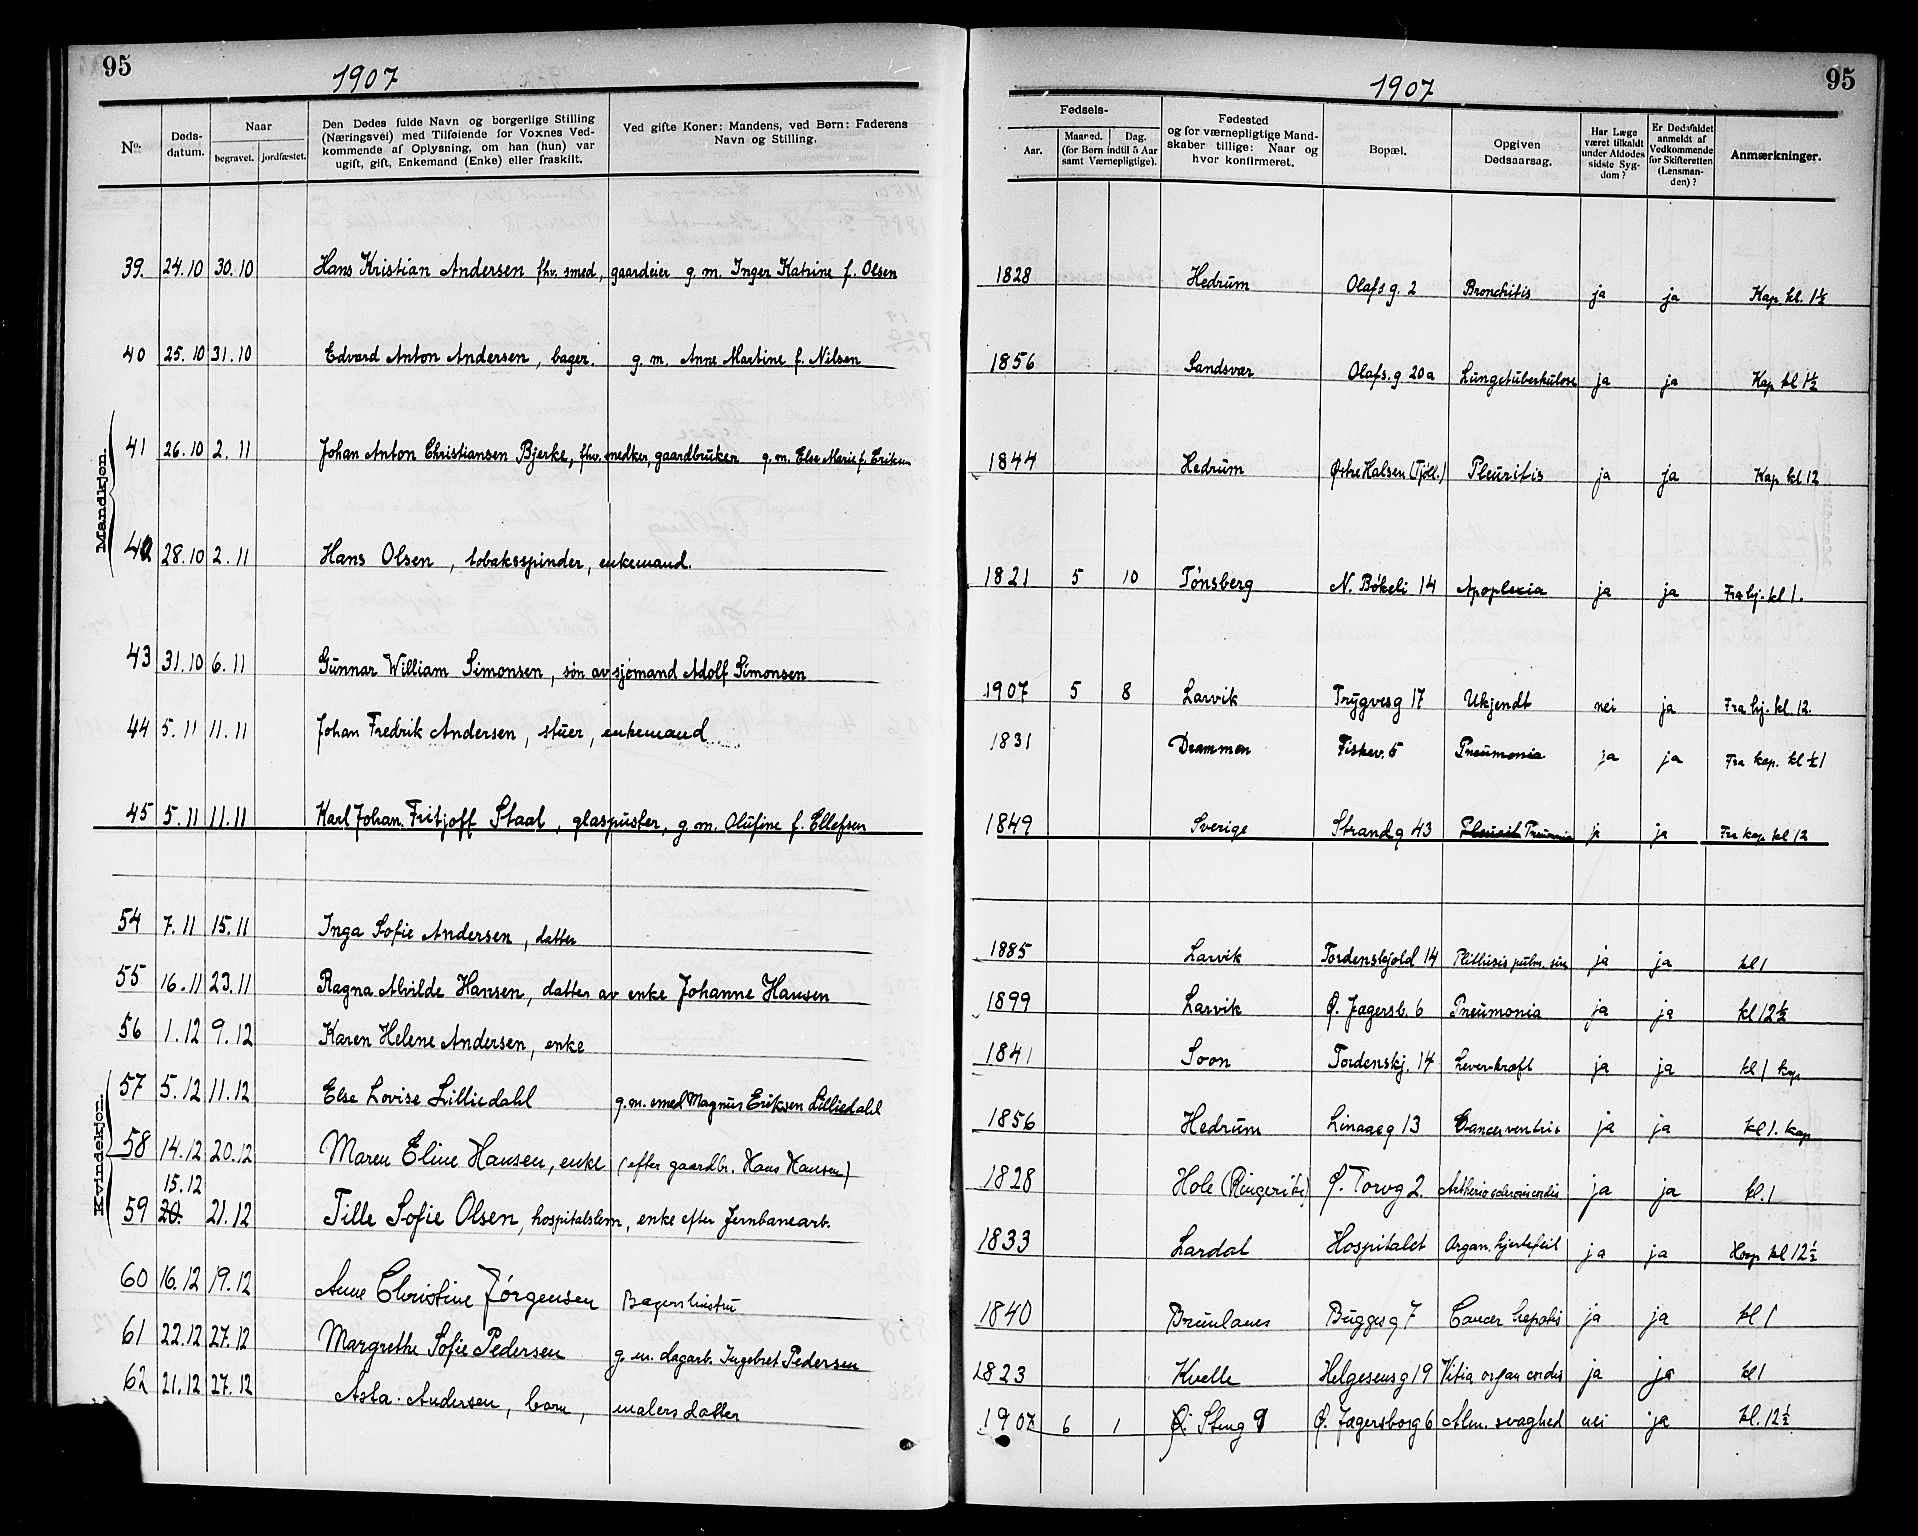 95
1907
No.
Døds-datum.
Naar
begravet.
jordfæstet.
Den Dødes fulde Navn og borgerlige Stilling (Næringsvei) med Tilføiende for Voxnes Vedkommende af Oplysning, om han (hun) var ugift, gift, Enkemand (Enke) eller fraskilt.
Ved gifte Koner: Mandens, ved Børn: Faderens Navn og Stilling.
Mandkjøn.
39. 24.10 30.10 Hans Kristian Andersen fhv. smed, gaardeier g. m. Inger Katrine f. Olsen
40 25.10 31.10 Edvard Anton Andersen, bager. g. m. Anne Martine f. Nilsen
41 26.10 2.11 Johan Anton Christiansen Bjerke, fhv. snedker, gaardbruker g. m. Else Marie f. Eriksen
42 28.10 2.11 Hans Olsen, tobaksspinder, enkemand.
43 31.10 6.11 Gunnar William Simonsen, søn av sjømand Adolf Simonsen
44 5.11 11.11 Johan Fredrik Andersen, stuer, enkemand
45 5.11 11.11 Karl Johan Fritjoff Staal, glaspuster, g. m. Olufine f. Ellefsen
Kvindekjøn.
54 7.11 15.11 Inga Sofie Andersen, datter
55 16.11 23.11 Ragna Alvilde Hansen, datter av enke Johanne Hansen
56 1.12 9.12 Karen Helene Andersen, enke
57 5.12 11.12 Else Lovise Lilliedahl g. m. smed Magnus Eriksen Lilliedahl
58 14.12 20.12 Maren Eline Hansen, enke (efter gaardbr. Hans Hansen)
15.12
59 20. 21.12 Tille Sofie Olsen, hospitalslem, enke efter Jernbanearb.
60 16.12 19.12 Anne Christine Jørgensen Bagershustru
61 22.12 27.12 Margrethe Sofie Pedersen g. m. dagarb. Ingebret Pedersen
62 21.12 27.12 Asta Andersen, barn, malers datter
1907
95
Fødsels-
Aar.
Maaned. Dag.
(for Børn indtil 5 Aar samt Værnepligtige).
Fødested og for værnepligtige Mandskaber tillige: Naar og hvor konfirmeret.
Bopæl.
Opgiven Dødsaarsag.
Har Læge været tilkaldt under Afdødes sidste Sygdom?
Er Dødsfaldet anmeldt af Vedkommende for Skifteretten (Lensmanden)?
Anmærkninger.
1828 Hedrum Olafs g. 2 Bronchitis ja ja Kap kl. 1½
1856 Sandsvær Olafs. g 20a Lungetuberkulose ja ja Kap kl 1½
1844 Hedrum Østre Halsen (Tjøll.) Pleuritis ja ja Kap kl 12
1821 5 10 Tønsberg N. Bøkeli 14 Apoplexia ja ja Fra hj. kl 1.
1907 5 8 Larvik Trygvesg 17 Ukjendt nei ja Fra hj. kl. 12.
1831 Drammen Fiskerv. 5 Pneumonia ja ja Fra kap. kl ½1
1849 Sverige Strandg 43 Pleurit Pneumonia ja ja Fra kap kl 12
1885 Larvik Tordenskjold 14 Phthisis pulm. ja ja kl 1
1899 Larvik Ø. Jagersb. 6 Pneumonia ja ja kl 12½
1841 Soon Tordenskj. 14 Leverkræft ja ja kl 1 kap
1856 Hedrum Linaaeg 13 Cancer ventric ja ja kl 1. kap
1828 Hole (Ringerike) Ø. Torvg 2. ja ja kl. 1
1833 Lardal Hospitalet Organ. hjertefeil ja ja Hosp kl 12½
1840 Brunlanes Buggesg 7 Cancer hepatis ja ja kl 1
1823 Kvelle Helgesensg 19 Vitia organ cordis ja ja kl 1
1907 6 1 Ø. Steng 9 Ø. Jagersborg 6 Alm. svaghed nei ja kl. 12½